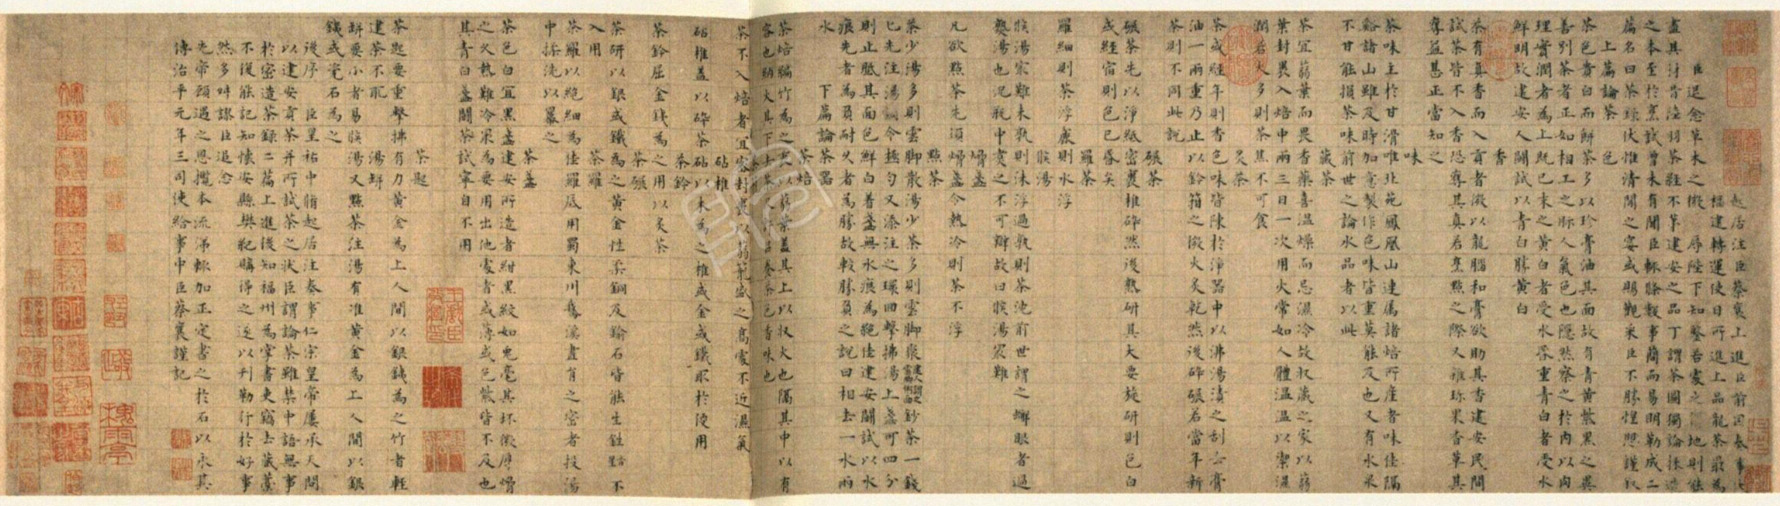 起居注臣蔡襄上進臣前因奏事伏
福建轉運使日所進上品龍茶最為
臣退念草木之微
地則能
盡其材昔陸羽茶經不第建安之品丁謂茶圖獨論採造
之本至於烹試曾未有聞臣輒條數事簡而易明勒成二
篇名曰茶錄伏惟清閒之宴或賜觀采臣不勝惶懼謹叙
上篇論茶
色
茶色貴白而餅茶多以珍膏油其面故有青黃紫黑之異
善別茶者正如相工之眎人氣色也隱然察之於內以肉
理實潤者為上既已末之黃白者受水昏重青白者受水
鮮明故建安人鬪試以青白勝黃白
香
茶有真香而入貢者微以龍腦和膏欲助其香建安民間
試茶皆不入香恐奪其真若烹點之際又雜珍果香草其
奪益甚正當知之
味
茶味主於甘滑唯北苑鳳凰山連屬諸焙所產者味佳隔
谿諸山雖及時加意製作色味皆重莫能及也又有水泉
不甘能損茶味前世之論水品者以此
藏茶
茶宜蒻葉而畏香藥喜溫燥而忌濕冷故收藏之家以蒻
葉封裹入焙中兩三日一次用火常如人體溫溫以禦濕
潤若火多則茶焦不可食
炙茶
茶或經年則香色味皆陳於淨器中以沸湯漬之刮去膏
油一兩重乃止以鈐箝之微火炙乾然後碎碾若當年新
茶則不同此說
碾茶
碾茶先以淨紙密裹椎碎然後熟研其大要旋研則色白
或經宿則色已昏矣
羅茶
羅細則茶浮麤則水浮
候湯
候湯最難未熟則沫浮過熟則茶沈前世謂之蟹眼者過
熟湯也況瓶中煑之不可辯故曰候湯最難
熁盞
凡欲點茶先須熁盞令熱冷則茶不浮
點茶
茶少湯多則雲脚散湯少茶多則雲脚聚鈔茶一錢
七先注湯調令極勻又添注之環回擊拂湯上盞可四分
則止眎其面色鮮白著盞無水痕為絶佳建安鬪試以水
痕先者為負耐久者為勝故較勝負之說曰相去一水兩
水
下篇論茶器
茶焙
茶焙編竹為之裹以蒻葉蓋其上以收火也隔其中以有
容也納火其下去茶尺許常溫溫然所以養茶色香味也
茶不入焙者宜密封裹以蒻籠盛之高處不近濕氣
砧椎
砧椎蓋以砕茶砧以木為之椎或金或鐵取於便用
茶鈐
茶鈐屈金鐵為之用以炙茶
茶碾
茶研以銀或鐵為之黃金性柔銅及鍮石皆能生鉎不
入用
茶羅
茶羅以絶細為佳羅底用蜀東川鵞溪畫絹之密者投湯
中揉洗以羃之
茶盞
茶色白宜黑盞建安所造者紺黑紋如兔毫其坯微厚熁
之久熱難冷最為要用出他處者或薄或色紫皆不及也
其青白盞鬪茶試家自不用
茶匙
茶匙要重擊拂有力黃金為上人間以銀鐵為之竹者輕
建茶不取
湯缾
缾要小者易候湯又點茶注湯有准黃金為上人間以銀
鐵或甆石為之
後序
臣皇祐中脩起居注奏事仁宗皇帝屢承天問
以建安貢茶并所試茶之狀臣謂論茶雖禁中語無事
於密造茶錄二篇上進後知福州為掌書吏竊去藏藁
不復能記知懷安縣樊紀購得之遂以刋勒行於好事
然多舛謬臣追念
先帝顧遇之恩攬本流涕輒加正定書之於石以永其
傳治平元年三司使給事中臣蔡襄謹記